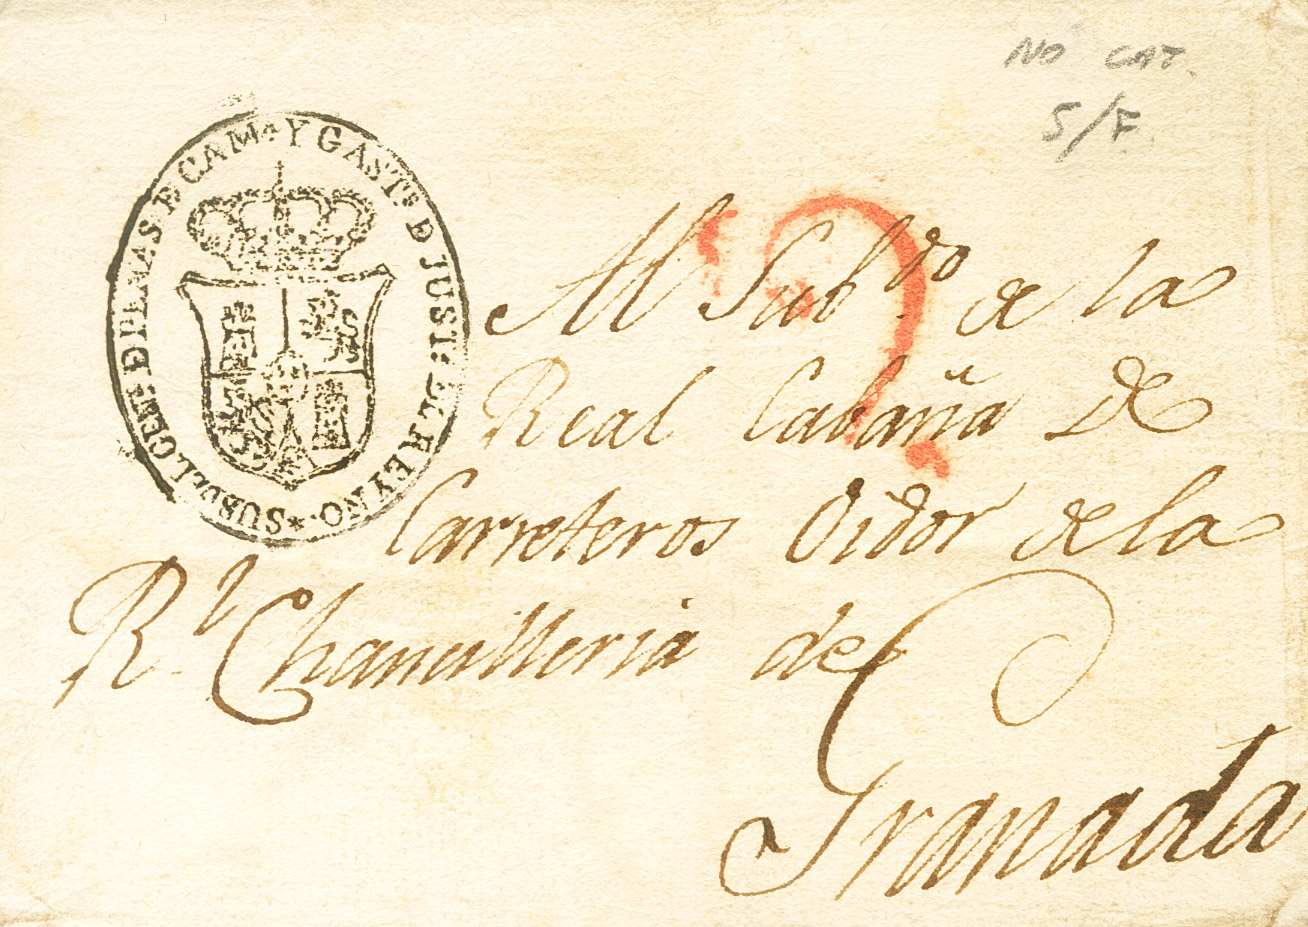 NO CAT.
S/F.
SUBDEL.N GEN.L D PENAS D CAM.A Y GAST.S D JUST.A D REYNO.*
Al Subd.do de la
Real Cabaña de
Carreteros Oidor de la
R.l Chancilleria de
Granada